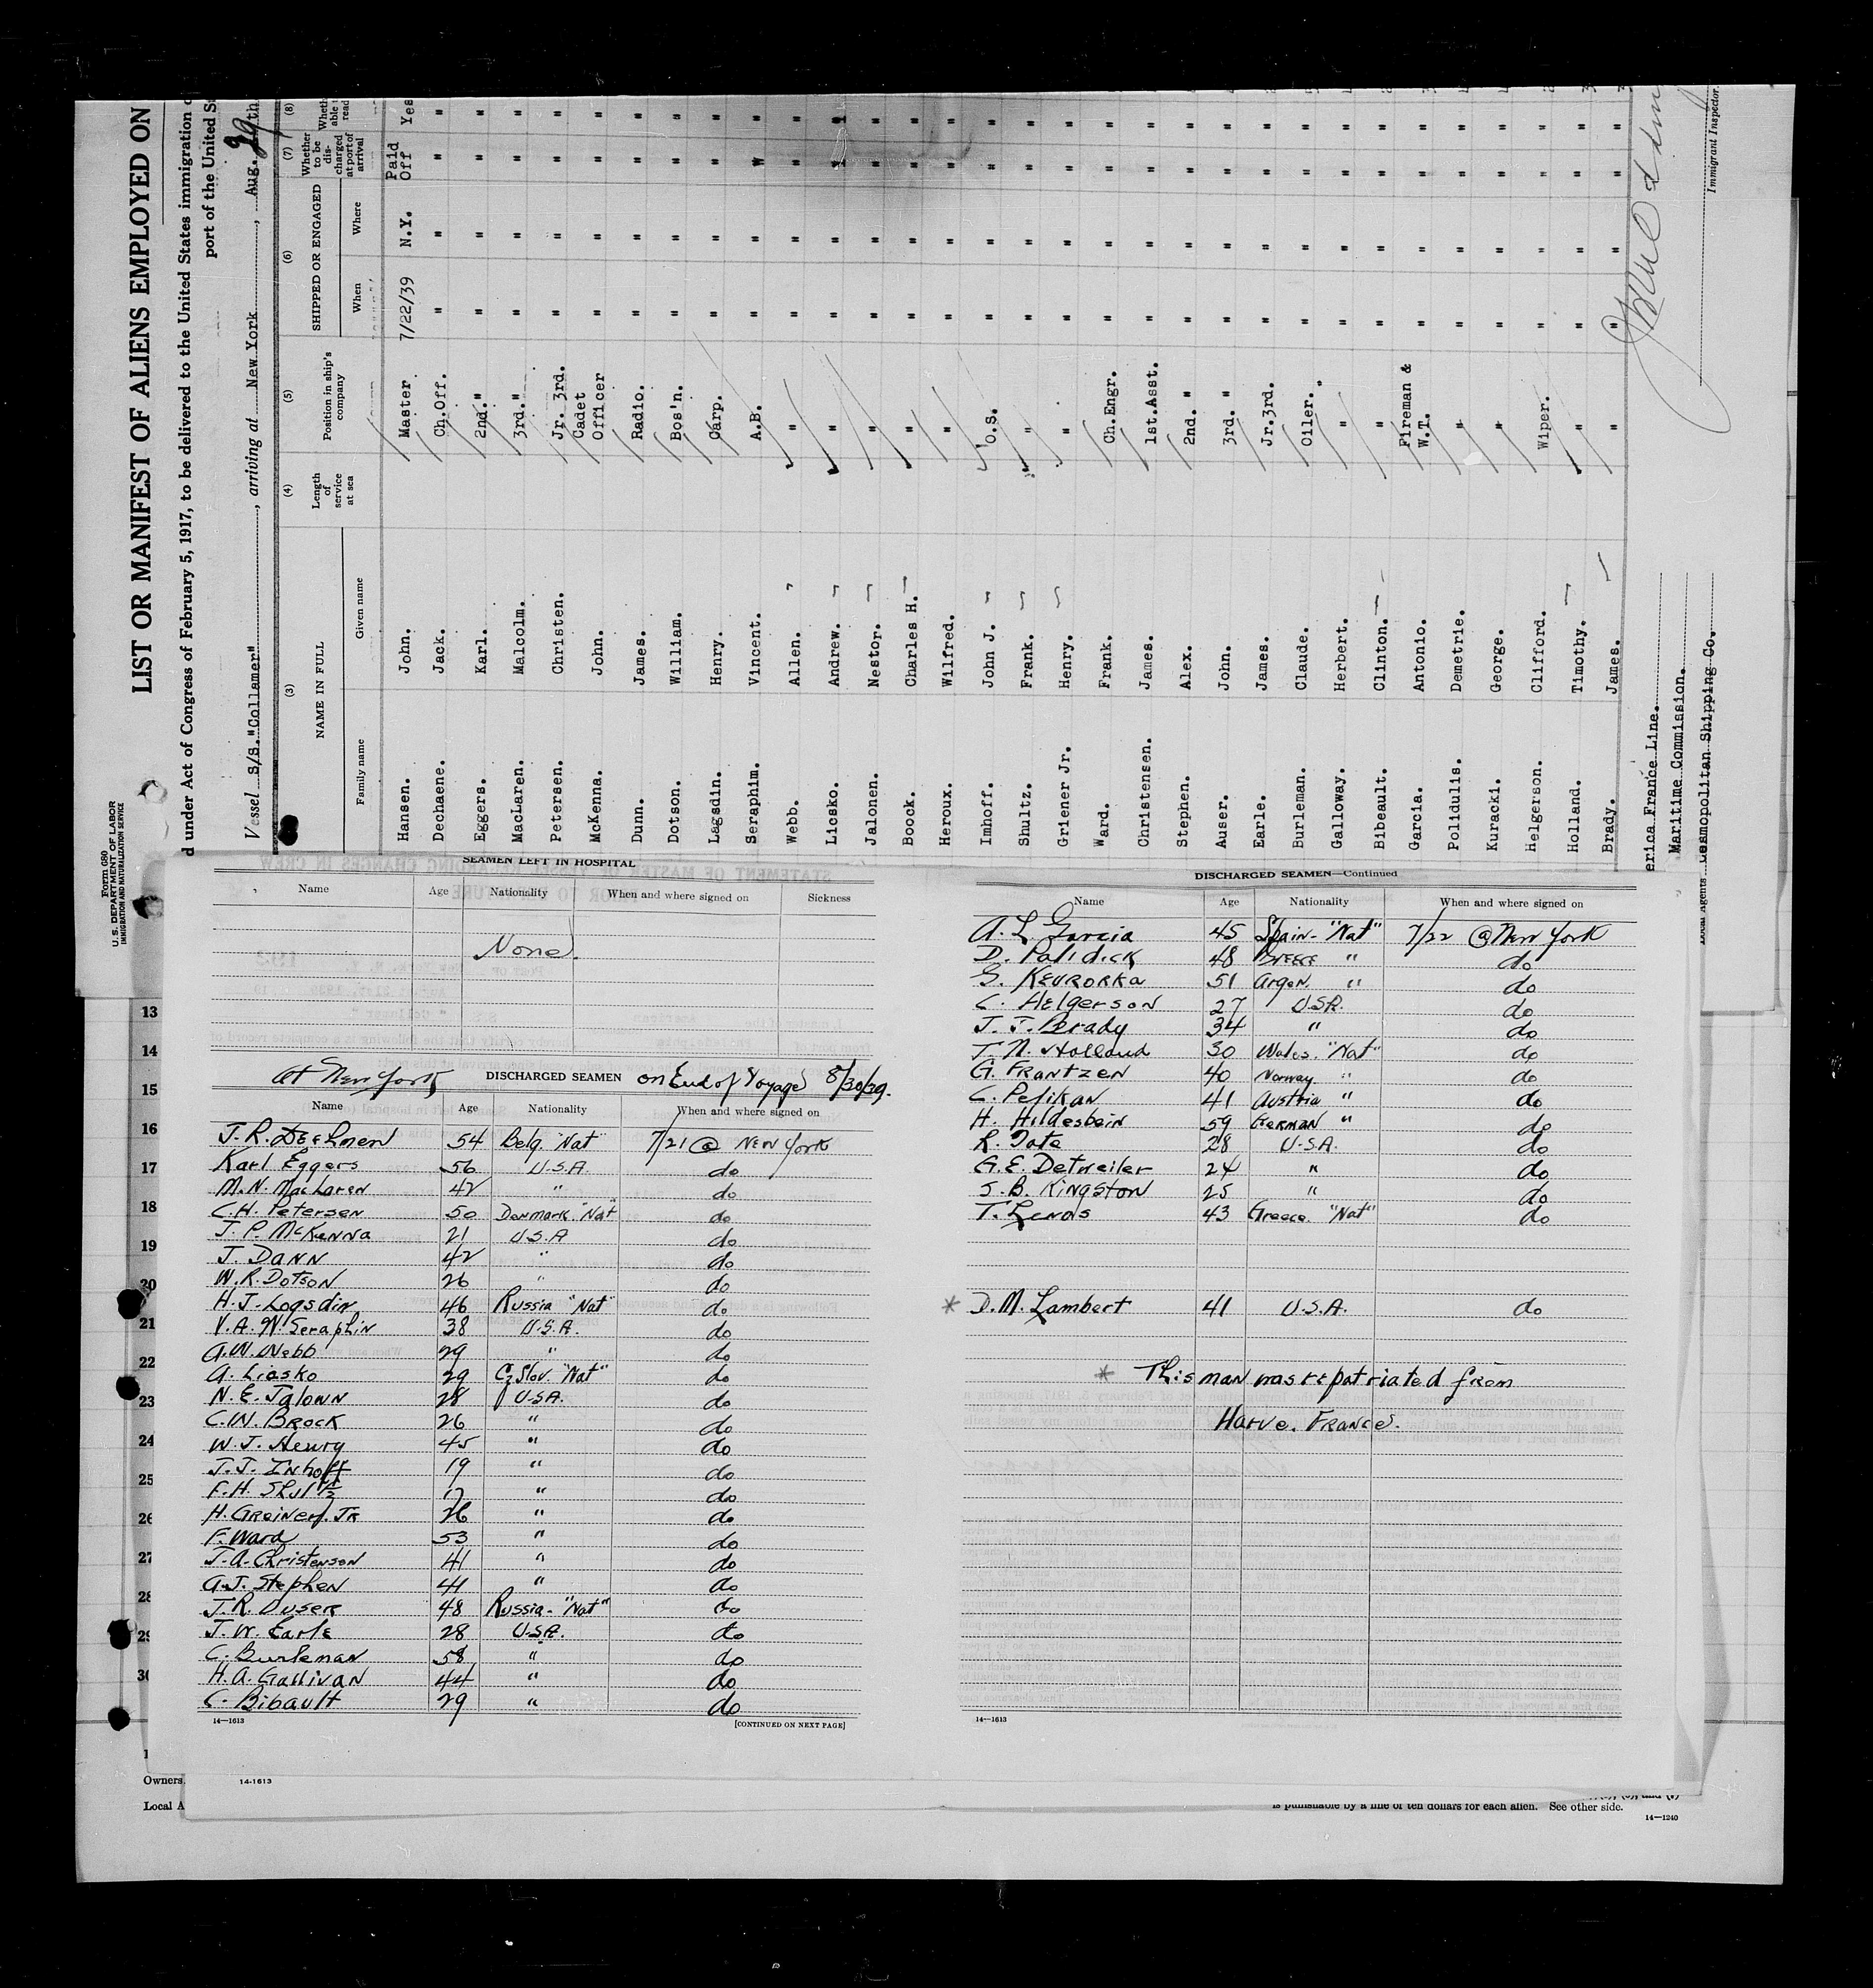 Form 680
U. S. DEPARTMENT OF LABOR
IMMIGRATION AND NATURALIZATION SERVICE
LIST OR MANIFEST OF ALIENS EMPLOYED ON
d under Act of Congress of February 5, 1917, to be delivered to the United States immigration
port of the United S
Vessel S/S."Collamer", arriving at New York, Aug. 29th
(3) (4) (5) (6) (7) (8)
NAME IN FULL Length of service at sea Position in ship's company SHIPPED OR ENGAGED Whether to be discharged at port of arrival
Family name Given name When Where
Hansen. John. Master. 7/22/39 N.Y. Paid Off Yes
Dechaene. Jack. Ch.Off. " " " "
Eggers. Karl. 2nd." " " " "
MacLaren. Malcolm. 3rd." " " " "
Petersen. Christen. Jr. 3rd. " " " "
McKenna. John. Cadet Officer " " " "
Dunn. James. Radio. " " " "
Dotson. William. Bos'n. " " " "
Lagsdin. Henry. Carp. " " " "
Seraphim. Vincent. A.B. " " " "
Webb. Allen. " " " " "
Licsko. Andrew. " " " " "
Jalonen. Nestor. " " " " "
Boock. Charles H. " " " " "
Heroux. Wilfred. " " " " "
Imhoff. John J. O.S. " " " "
Shultz. Frank. " " " " "
Griener Jr. Henry. " " " " "
Ward. Frank. Ch.Engr. " " " "
Christensen. James. 1st.Asst. " " " "
Stephen. Alex. 2nd. " " " " "
Auser. John. 3rd. " " " " "
Earle. James. Jr.3rd. " " " " "
Burleman. Claude. Oiler. " " " "
Galloway. Herbert. " " " " "
Bibeault. Clinton. " " " " "
Garcia. Antonio. Fireman & W.T. " " " "
Polidulis. Demetrie. " " " " "
Kuracki. George. " " " " "
Helgerson. Clifford. Wiper. " " " "
Holland. Timothy. " " " " "
Brady. James. " " " " "
erica France Line.
Maritime Commission.
Cosmopolitan Shipping Co.
Immigrant Inspector.
SEAMEN LEFT IN HOSPITAL
Name Age Nationality When and where signed on Sickness
None
At New York DISCHARGED SEAMEN on End of Voyage 8/30/39.
Name Age Nationality When and where signed on
54 Belg. "Nat" 7/21 @ New York
Karl Eggers 56 U.S.A. do
M.N. MacLaren 42 " do
C.H. Petersen 50 Denmark "Nat" do
J.P. McKenna 21 U.S.A do
J. Dann 42 " do
W.R. Dotson 26 " do
H.J. Logsdin 46 Russia "Nat" do
V.A.W. Seraphin 38 U.S.A. do
A.W. Webb 29 " do
A. Liasko 29 Cz Slov. "Nat" do
N.E. Jalown 28 U.S.A. do
C.W. Brock 26 " do
W.J. Henry 45 " do
J.J. Inhoff 19 " do
F.H. Shultz 17 " do
H. Greiner. Jr 26 " do
F. Ward 53 " do
J.A. Christenson 41 " do
A.J. Stephen 41 " do
J.R. Ouser 48 Russia - "Nat" do
J.W. Earle 28 U.S.A. do
C. Burleman 58 " do
H.A. Gallivan 44 " do
C. Bibault 29 " do
14—1613 [CONTINUED ON NEXT PAGE]
DISCHARGED SEAMEN—Continued
Name Age Nationality When and where signed on
A. L Garcia 45 Spain - "Nat" 7/22 @ New York
D. Palidick 48 Greece " do
G. Keurorka 51 Argen. " do
C. Helgerson 27 U.S.A. do
J. J. Brady 34 " do
T. N. Holland 30 Wales. "Nat" do
G. Frantzen 40 Norway. " do
C. Pelikan 41 Austria " do
H. Hildesbein 59 German " do
R. Tate 28 U.S.A. do
G.E. Detweiler 24 " do
S.B. Kingston 25 " do
T. Lenos 43 Greece. "Nat" do
* D.M. Lambert 41 U.S.A. do
* This man was repatriated from
Harve. France.
14—1613
13
14
15
16
17
18
19
20
21
22
23
24
25
26
27
28
29
30
Owners
14-1613
Local A
is punishable by a fine of ten dollars for each alien. See other side.
14—1240